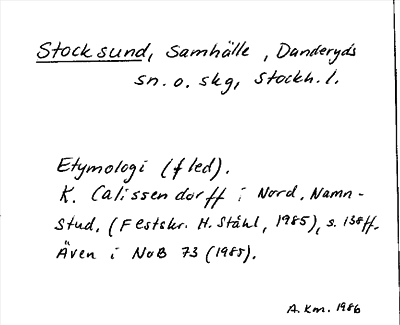 Stocksund, samhälle, Danderyds
sn. o. skg, Stockh. l.
Etymologi (f led).
K. Calissendorff i Nord. Namn-
stud. (Festskr. H. Ståhl, 1985), s. 138ff.
Även i NoB 73 (1985).
A. Km. 1986